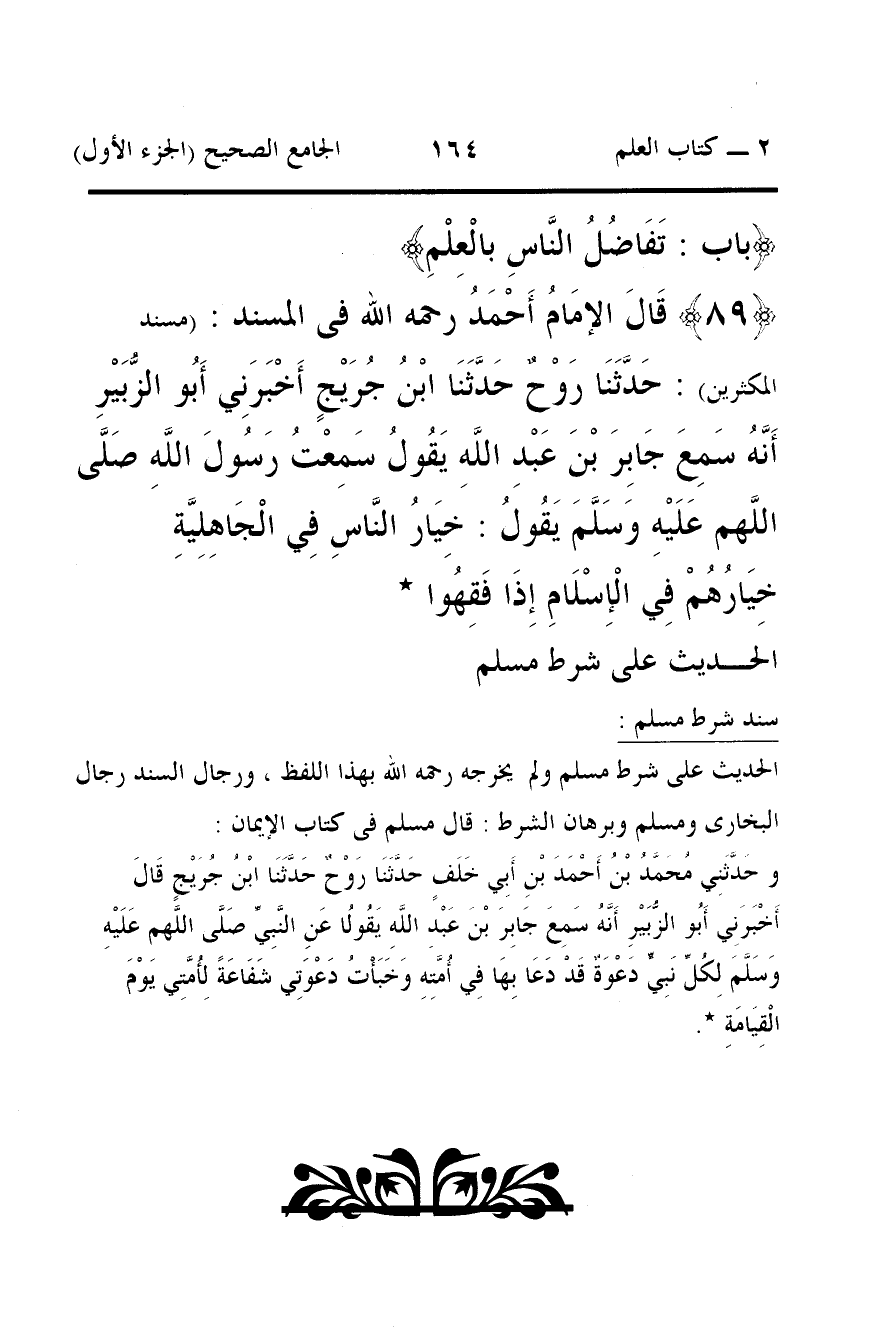 ٢ ــ كتاب العلم ١٦٤ الجامع الصحيح (الجزء الأول)
﴿باب : تَفَاضُلُ النَّاسِ بالْعِلْمِ﴾
﴿٨٩﴾ قَالَ الإمَامُ أَحْمَدُ رحمه الله فى المسند : (مسند
المكثرين) : حَدَّثَنَا رَوْحٌ حَدَّثَنَا ابْنُ جُرَيْجٍ أَخْبَرَنِي أَبُو الزُّبَيْرِ
أَنَّهُ سَمِعَ جَابِرَ بْنَ عَبْدِ اللَّهِ يَقُولُ سَمِعْتُ رَسُولَ اللَّهِ صَلَّى
اللَّهم عَلَيْهِ وَسَلَّمَ يَقُولُ : خِيَارُ النَّاسِ فِي الْجَاهِلِيَّةِ
خِيَارُهُمْ فِي الْإِسْلَامِ إِذَا فَقِهُوا *
الحـــديث على شرط مسلم
سند شرط مسلم :
الحديث على شرط مسلم ولم يخرجه رحمه الله بهذا اللفظ ، ورجال السند رجال
البخارى ومسلم وبرهان الشرط : قال مسلم فى كتاب الإيمان :
و حَدَّثَنِي مُحَمَّدُ بْنُ أَحْمَدَ بْنِ أَبِي خَلَفٍ حَدَّثَنَا رَوْحٌ حَدَّثَنَا ابْنُ جُرَيْجٍ قَالَ
أَخْبَرَنِي أَبُو الزُّبَيْرِ أَنَّهُ سَمِعَ جَابِرَ بْنَ عَبْدِ اللَّهِ يَقُولُا عَنِ النَّبِيِّ صَلَّى اللَّهم عَلَيْهِ
وَسَلَّمَ لِكُلِّ نَبِيٍّ دَعْوَةٌ قَدْ دَعَا بِهَا فِي أُمَّتِهِ وَخَبَأْتُ دَعْوَتِي شَفَاعَةً لِأُمَّتِي يَوْمَ
الْقِيَامَةِ *.